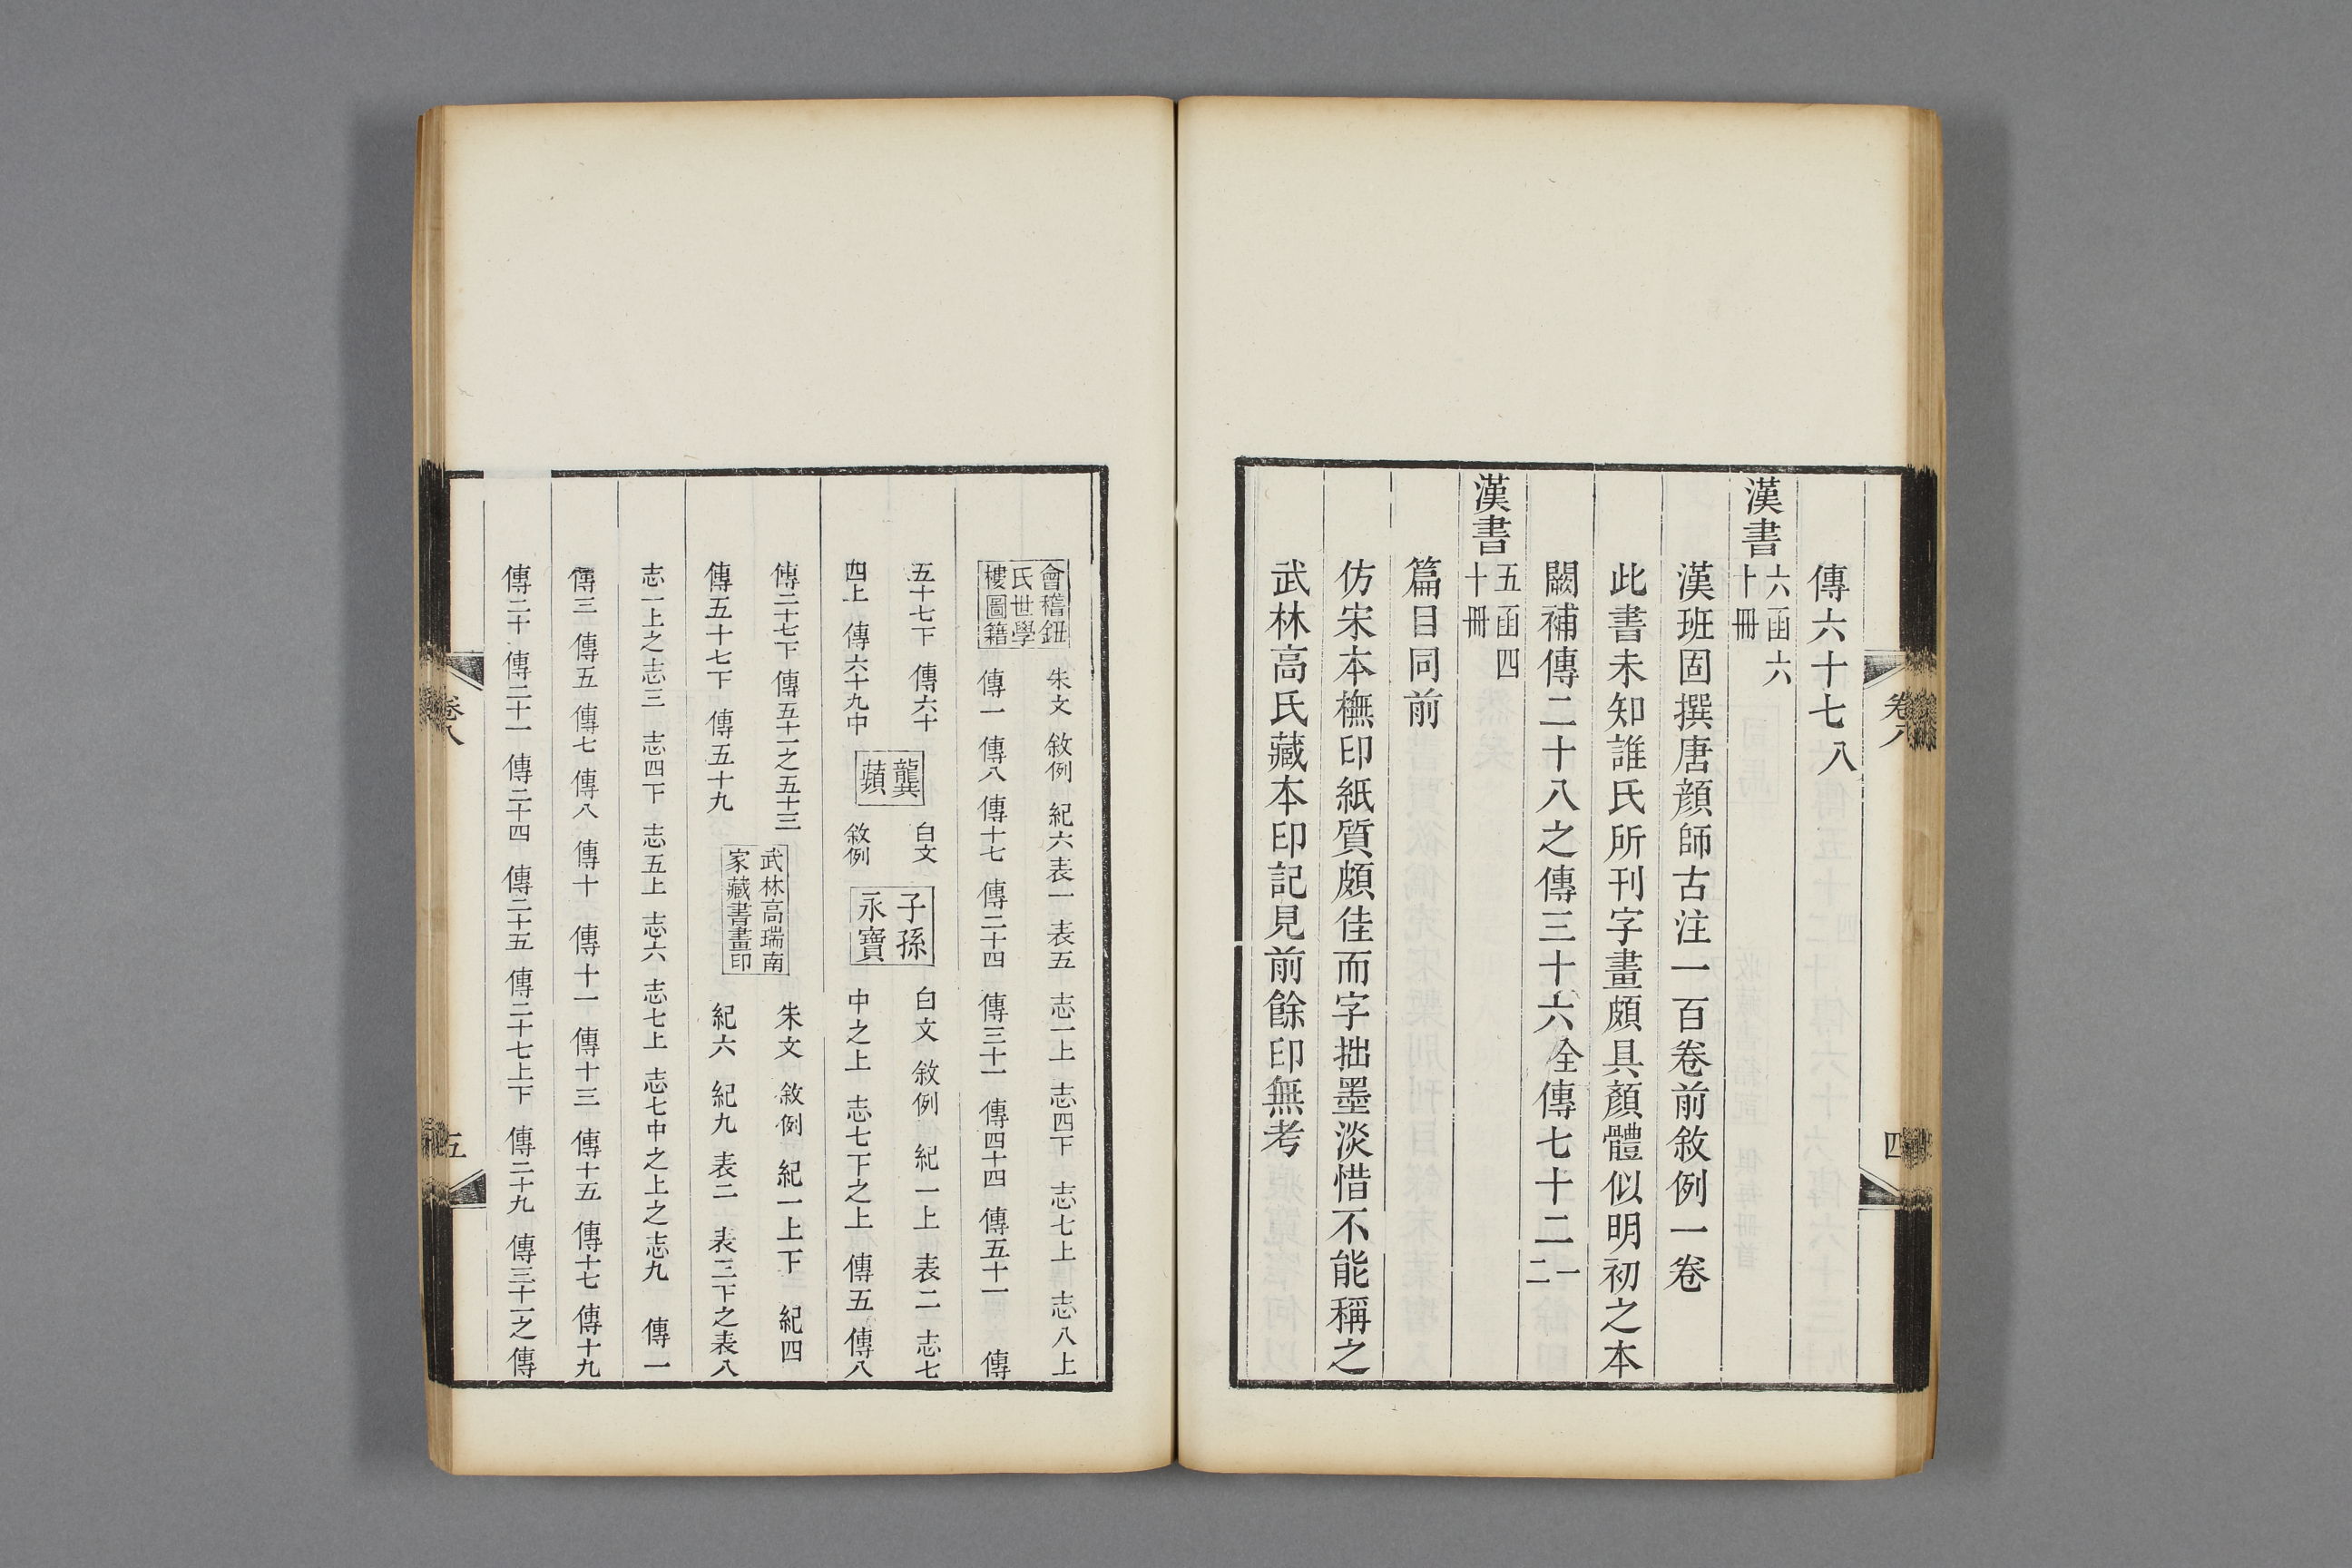 傳六十七八
漢書六函六十冊
漢班固撰唐顏師古注一百卷前敘例一卷
此書未知誰氏所刊字畫頗具顏體似明初之本
闕補傳二十八之傳三十六全傳七十二一二
漢書五函四十冊
篇目同前
仿宋本橅印紙質頗佳而字拙墨淡惜不能稱之
武林高氏藏本印記見前餘印無考
卷八
四
會稽鈕氏世學樓圖籍 朱文 敘例 紀六 表一 表五 志一上 志四下 志七上 志八上
傳一 傳八 傳十七 傳二十四 傳三十一 傳四十四 傳五十一 傳
五十七下 傳六十四上 傳六十九中 龔蘋 白文 敘例 子孫永寶 白文 敘例 紀一上 表二 志七
中之上 志七下之上 傳五 傳八
傳二十七下 傳五十一之五十三
傳五十七下 傳五十九 武林高瑞南家藏書畫印 朱文 敘例 紀一上下 紀四
紀六 紀九 表二 表三下之表八
志一上之志三 志四下 志五上 志六 志七上 志七中之上之志九 傳一
傳三 傳五 傳七 傳八 傳十 傳十一 傳十三 傳十五 傳十七 傳十九
傳二十 傳二十一 傳二十四 傳二十五 傳二十七上下 傳二十九 傳三十一之傳
卷八
五